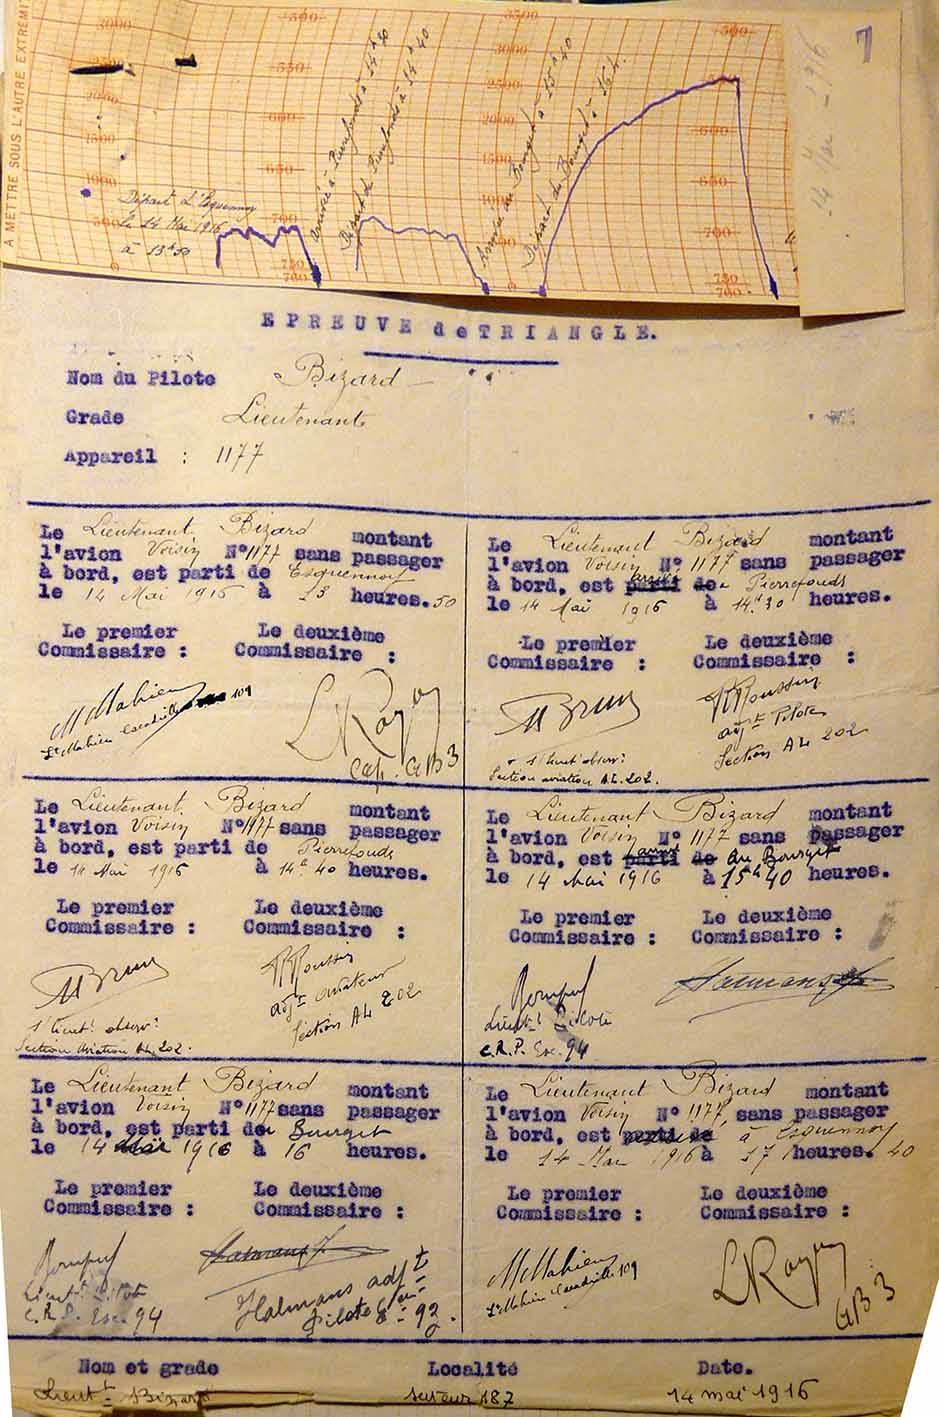 A METTRE SOUS L'AUTRE EXTREMIT
3000
2500
2000
1500
1000
500
0
550
600
650
700
750
760
3500
3000
2500
2000
1500
500
0
500
600
650
700
750
760
Départ d'Esquennoy
le 14 Mai 1916
à 13h50
arrivée à Pierrefonds à 14h30
Départ de Pierrefonds à 14h40
Arrivée au Bourget à 15h40
Départ du Bourget à 16h.
14 Mai 1916
7
EPREUVE de TRIANGLE.
Nom du Pilote Bizard
Grade Lieutenant
Appareil : 1177
Le Lieutenant Bizard montant
l'avion Voisin N°1177 sans passager
à bord, est parti de Esquennoy
le 14 Mai 1916 à 13 heures. 50
Le premier Le deuxième
Commissaire : Commissaire :
M Mahieu
Lt Mahieu Escadrille 109
L Razoy
Cap. GB3
Le Lieutenant Bizard montant
l'avion Voisin N° 1177 sans passager
à bord, est parti de arrivé à Pierrefonds
le 14 Mai 1916 à 14h30 heures.
Le premier Le deuxième
Commissaire : Commissaire :
M Brun
s/lieutt observr
Section aviation AL. 202.
R Roussin
adjt Pilote
Section AL 202
Le Lieutenant Bizard montant
l'avion Voisin N°1177 sans passager
à bord, est parti de Pierrefonds
le 14 Mai 1916 à 14h 40 heures.
Le premier Le deuxième
Commissaire : Commissaire :
M Brun
s/lieutt observr
Section aviation AL. 202.
R Roussin
adjt aviateur
Section AL 202
Le Lieutenant Bizard montant
l'avion Voisin N° 1177 sans passager
à bord, est parti de arrivé au Bourget
le 14 Mai 1916 à 15h40 heures.
Le premier Le deuxième
Commissaire : Commissaire :
Lieutt Pilote
C.R.P. Esc. 94
Halmans
Le Lieutenant Bizard montant
l'avion Voisin N°1177 sans passager
à bord, est parti du Bourget
le 14 Mai 1916 à 16 heures.
Le premier Le deuxième
Commissaire : Commissaire :
Lieutt Pilote
C.R.P. Esc. 94
Halmans adjt
pilote 92
Le Lieutenant Bizard montant
l'avion Voisin N° 1177 sans passager
à bord, est parti de à Esquennoy
le 14 Mai 1916 à 17 heures. 40
Le premier Le deuxième
Commissaire : Commissaire :
M Mahieu
Lt Mahieu Escadrille 109
L Razoy
GB3
Nom et grade Localité Date.
Lieutt Bizard secteur 187 14 mai 1916